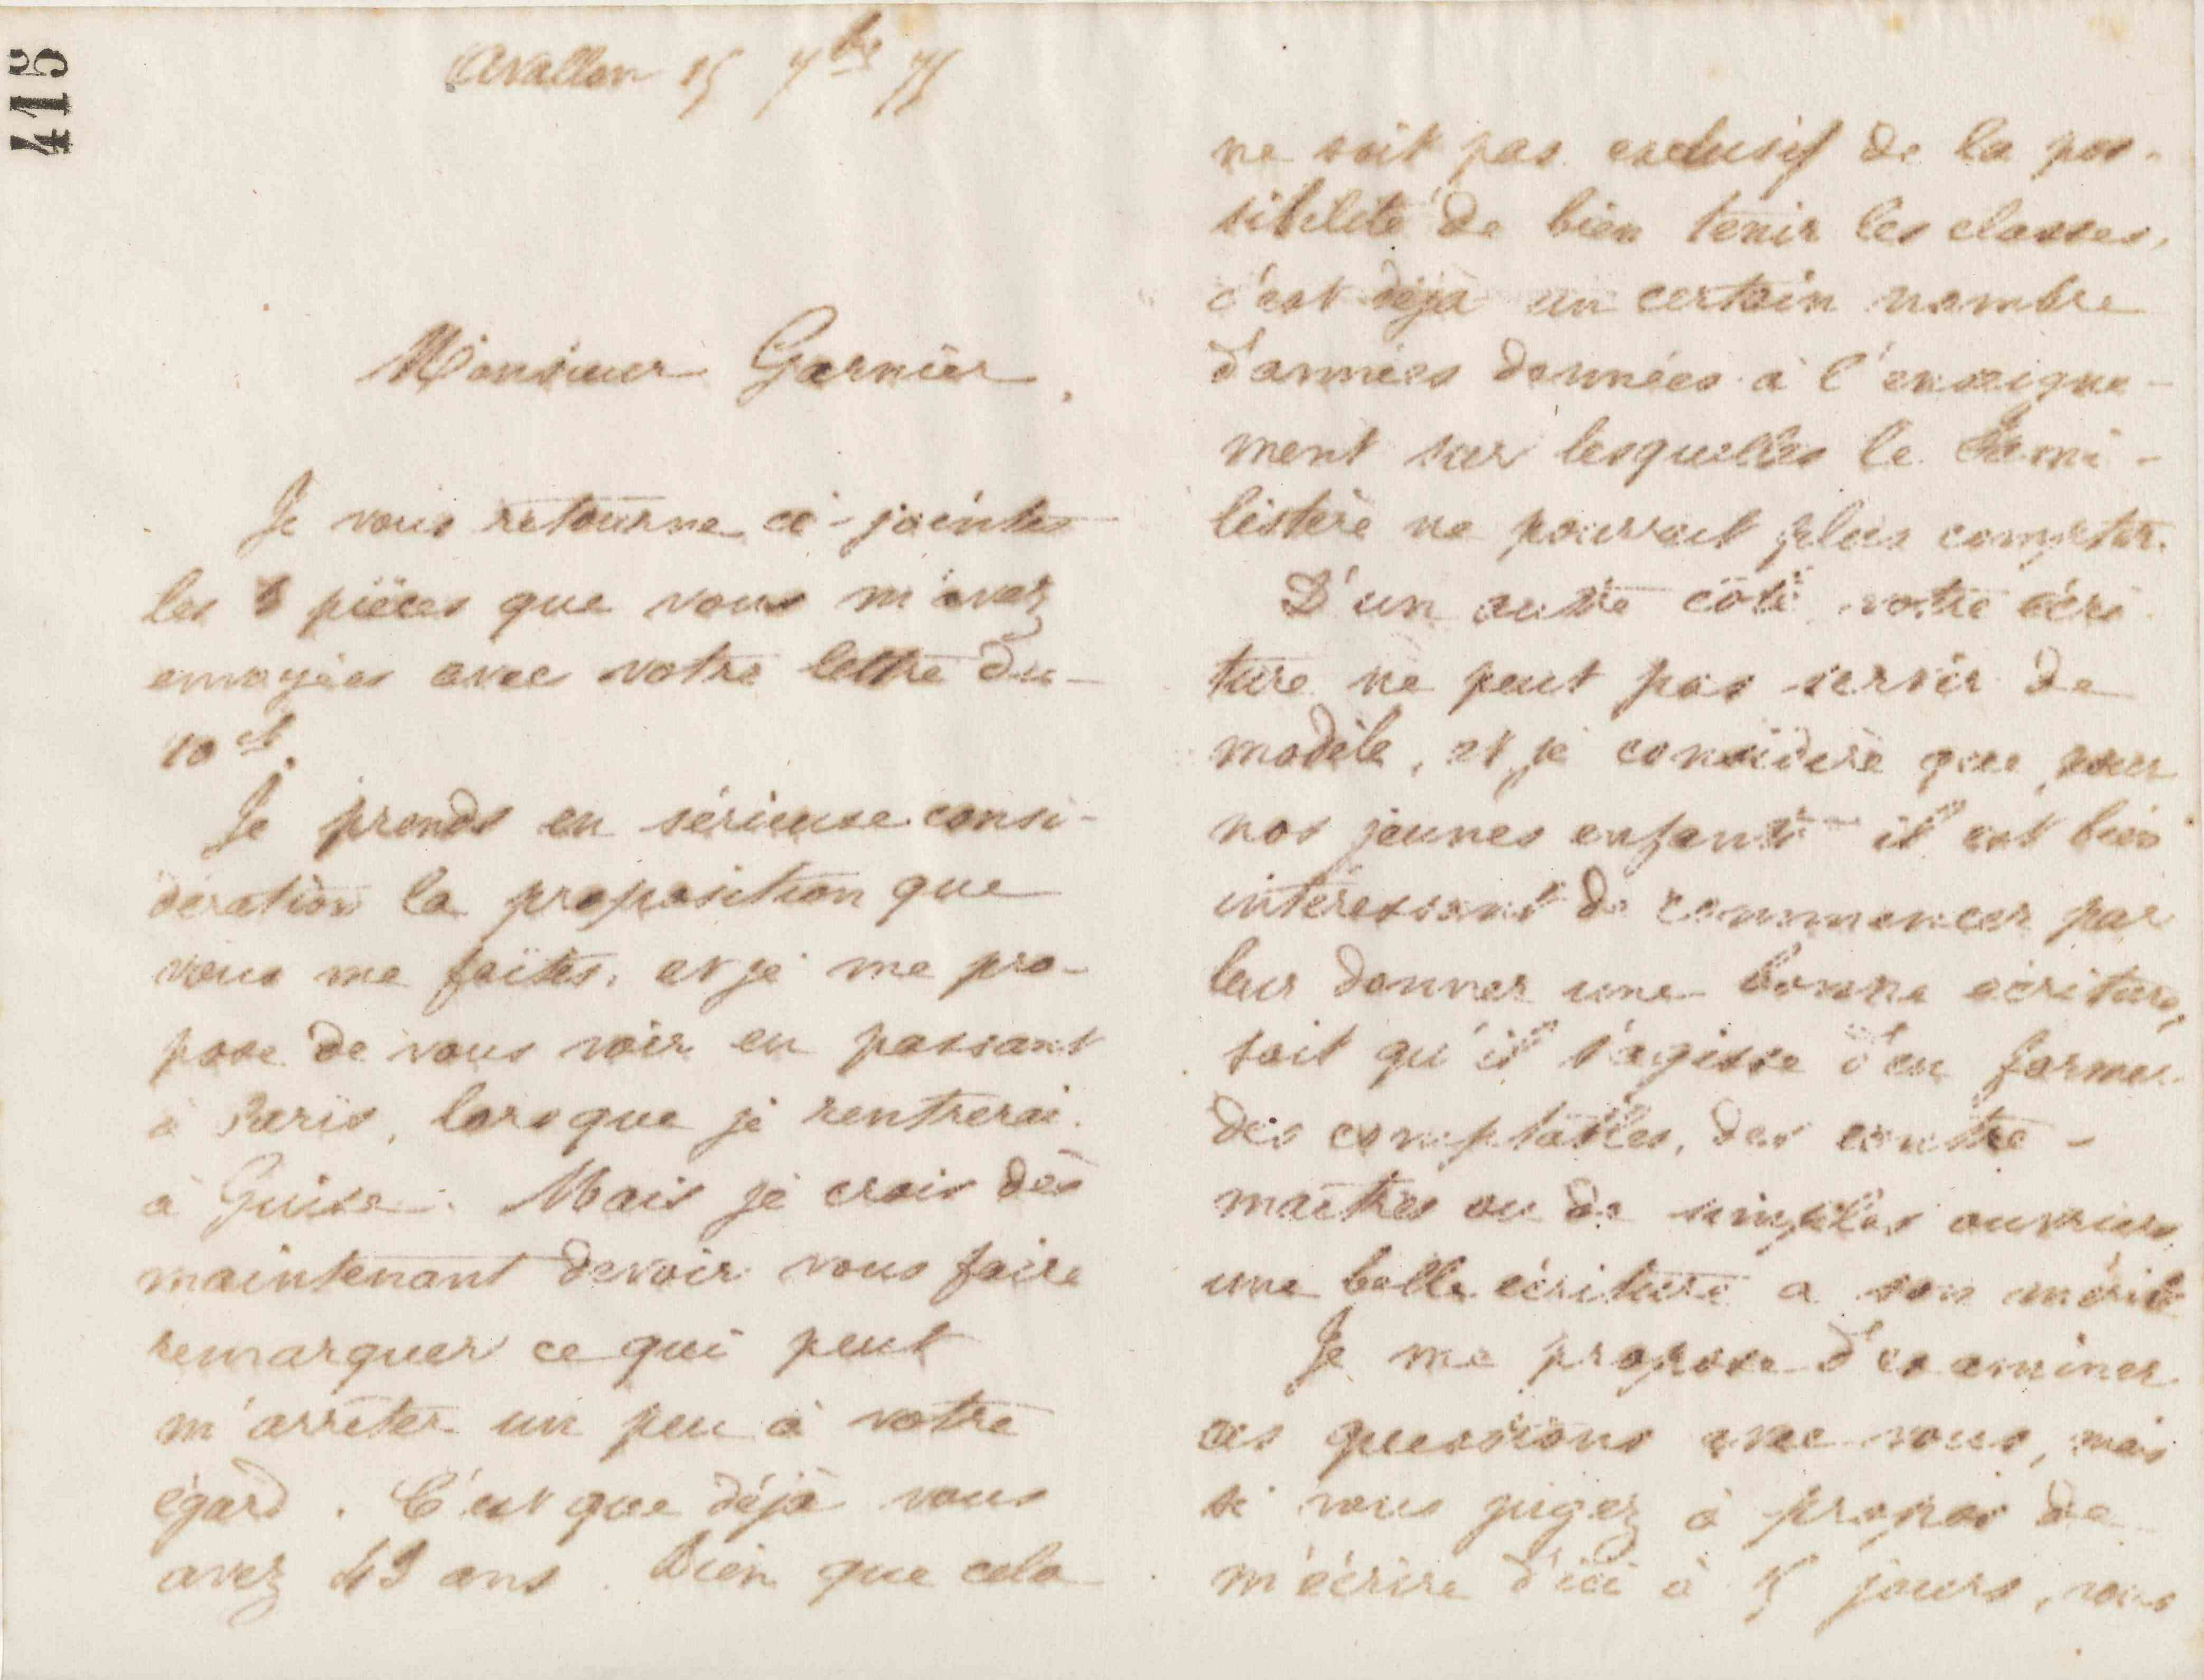 415
Avallon 15 7bre 77
Monsieur Garnier,
Je vous retourne ci-jointes
les pièces que vous m'avez
envoyées avec votre lettre du
10 ct.
Je prends en sérieuse consi-
dération la proposition que
vous me faites, et je me pro-
pose de vous voir en passant
à Paris, lorsque je rentrerai
à Guise. Mais je crois dès
maintenant devoir vous faire
remarquer ce qui peut
m'arrêter un peu à votre
égard. C'est que déjà vous
avez 49 ans. Bien que cela
ne soit pas exclusif de la pos-
sibilité de bien tenir les classes,
c'est déjà un certain nombre
d'années données à l'enseigne-
ment sur lesquelles le Fami-
listère ne pourrait plus compter.
D'un autre côté votre écri
ture ne peut pas servir de
modèle, et je considère que pour
nos jeunes enfants il est bien
intéressant de commencer par
leur donner une bonne écriture,
soit qu'il s'agisse d'en former
des comptables, des contre-
maîtres ou de simples ouvriers
une belle écriture a son mérite
Je me propose d'examiner
ces questions avec vous, mais
si vous jugez à propos de
m'écrire d'ici à 5 jours, vous